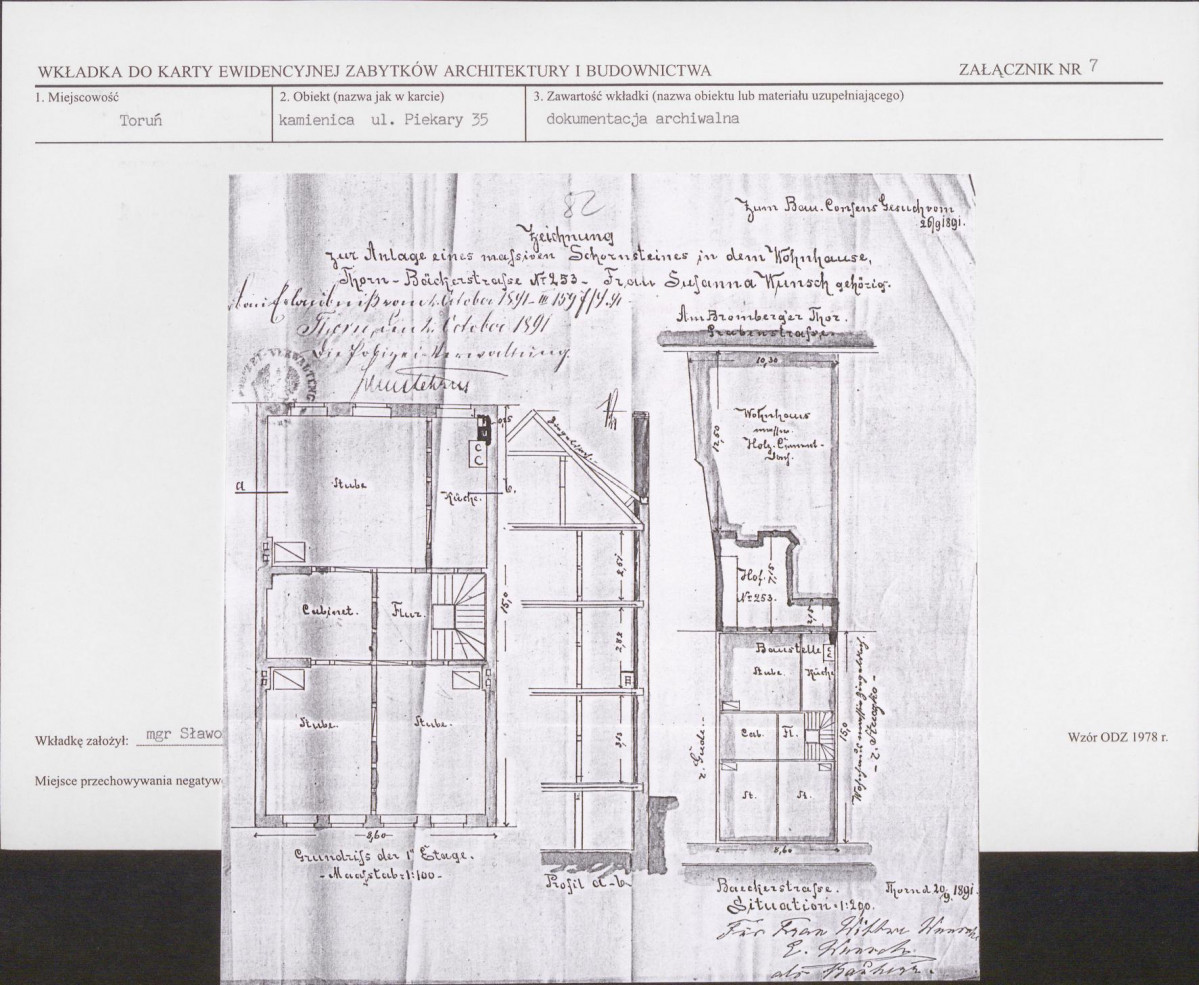 WKŁADKA DO KARTY EWIDENCYJNEJ ZABYTKÓW ARCHITEKTURY I BUDOWNICTWA
ZAŁĄCZNIK NR 7
1. Miejscowość
Toruń
2. Obiekt (nazwa jak w karcie)
kamienica ul. Piekary 35
3. Zawartość wkładki (nazwa obiektu lub materiału uzupełniającego)
dokumentacja archiwalna
82
Zum Bau. Consens Gesuch vom
26/9 1891.
Zeichnung
zur Anlage eines massiven Schornsteines in dem Wohnhause,
Thorn - Bäckerstrasse № 253 - Frau Susanna Wunsch gehörig.
vom 2. October 1891
Thorn, den 2. October 1891
Die Polizei-Verwaltung
Am Bromberger Thor.
Grabenstrasse
10,30
Wohnhaus
massiv
Holz-Cement-
12,50
Hof.
№ 253.
Stube
Küche.
a
b.
Cabinet.
Flur.
Stube.
Stube.
8,60
15,0
Grundriss der 1ᵗ Etage.
- Maasstab = 1:100 -
2,82
3,13
Profil a-b
Baustelle
Stube.
Küche
Cab.
Fl.
St.
St.
z. Gude.
15,0
8,60
Baeckerstrasse.
Situation = 1:200.
Thorn d 20/9. 1891.
Für Frau Wittwe Wunsch
E. Wunsch
als Bauherr.
Wkładkę założył: mgr Sławo
Miejsce przechowywania negatyw
Wzór ODZ 1978 r.